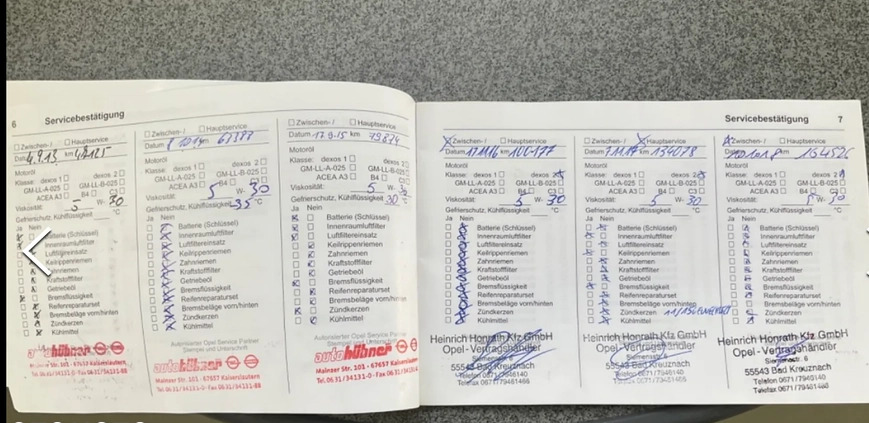 6 Servicebestätigung
Zwischen- / Hauptservice
Datum 4.9.13 km 48125
Motoröl
Klasse: dexos 1 dexos 2
GM-LL-A-025 GM-LL-B-025
ACEA A3 B4 C3
Viskosität: 5 W- 30
Gefrierschutz, Kühlflüssigkeit °C
Ja Nein
Batterie (Schlüssel)
Innenraumluftfilter
Luftfiltereinsatz
Keilrippenriemen
Zahnriemen
Kraftstofffilter
Getriebeöl
Bremsflüssigkeit
Reifenreparaturset
Bremsbeläge vorn/hinten
Zündkerzen
Kühlmittel
autohübner
Mainzer Str. 101 - 67657 Kaiserslautern
Tel. 0631/34131-0 - Fax 0631/34131-88
Zwischen- / Hauptservice
Datum km 67388
Motoröl
Klasse: dexos 1 dexos 2
GM-LL-A-025 GM-LL-B-025
ACEA A3 B4 C3
Viskosität: 5 W- 30
Gefrierschutz, Kühlflüssigkeit -35 °C
Ja Nein
Batterie (Schlüssel)
Innenraumluftfilter
Luftfiltereinsatz
Keilrippenriemen
Zahnriemen
Kraftstofffilter
Getriebeöl
Bremsflüssigkeit
Reifenreparaturset
Bremsbeläge vorn/hinten
Zündkerzen
Kühlmittel
Autorisierter Opel Service Partner
Stempel und Unterschrift
autohübner
Mainzer Str. 101 - 67657 Kaiserslautern
Tel. 0631/34131-0 - Fax 0631/34131-88
Zwischen- / Hauptservice
Datum 17.9.15 km 79874
Motoröl
Klasse: dexos 1 dexos 2
GM-LL-A-025 GM-LL-B-025
ACEA A3 B4 C3
Viskosität: 5 W- 30
Gefrierschutz, Kühlflüssigkeit 30 °C
Ja Nein
Batterie (Schlüssel)
Innenraumluftfilter
Luftfiltereinsatz
Keilrippenriemen
Zahnriemen
Kraftstofffilter
Getriebeöl
Bremsflüssigkeit
Reifenreparaturset
Bremsbeläge vorn/hinten
Zündkerzen
Kühlmittel
Autorisierter Opel Service Partner
Stempel und Unterschrift
autohübner
Mainzer Str. 101 - 67657 Kaiserslautern
Tel. 0631/34131-0 - Fax 0631/34131-88
Servicebestätigung 7
Zwischen- / Hauptservice
Datum 17.11.16 km 100.177
Motoröl
Klasse: dexos 1 dexos 2
GM-LL-A-025 GM-LL-B-025
ACEA A3 B4 C3
Viskosität: 5 W- 30
Gefrierschutz, Kühlflüssigkeit °C
Ja Nein
Batterie (Schlüssel)
Innenraumluftfilter
Luftfiltereinsatz
Keilrippenriemen
Zahnriemen
Kraftstofffilter
Getriebeöl
Bremsflüssigkeit
Reifenreparaturset
Bremsbeläge vorn/hinten
Zündkerzen
Kühlmittel
Heinrich Honrath Kfz GmbH
Opel-Vertragshändler
55543 Bad Kreuznach
Telefon 0671/7946140
Telefax 0671/79461466
Zwischen- / Hauptservice
Datum 7.11.17 km 134078
Motoröl
Klasse: dexos 1 dexos 2
GM-LL-A-025 GM-LL-B-025
ACEA A3 B4 C3
Viskosität: 5 W- 30
Gefrierschutz, Kühlflüssigkeit °C
Ja Nein
Batterie (Schlüssel)
Innenraumluftfilter
Luftfiltereinsatz
Keilrippenriemen
Zahnriemen
Kraftstofffilter
Getriebeöl
Bremsflüssigkeit
Reifenreparaturset
Bremsbeläge vorn/hinten
Zündkerzen
Kühlmittel
Heinrich Honrath Kfz GmbH
Opel-Vertragshändler
Siemensstr. 6
55543 Bad Kreuznach
Telefon 0671/7946140
Telefax 0671/79461466
Zwischen- / Hauptservice
Datum km 154526
Motoröl
Klasse: dexos 1 dexos 2
GM-LL-A-025 GM-LL-B-025
ACEA A3 B4 C3
Viskosität: 5 W- 30
Gefrierschutz, Kühlflüssigkeit °C
Ja Nein
Batterie (Schlüssel)
Innenraumluftfilter
Luftfiltereinsatz
Keilrippenriemen
Zahnriemen
Kraftstofffilter
Getriebeöl
Bremsflüssigkeit
Reifenreparaturset
Bremsbeläge vorn/hinten
Zündkerzen
Kühlmittel
Heinrich Honrath Kfz GmbH
Opel-Vertragshändler
Siemensstr. 6
55543 Bad Kreuznach
Telefon 0671/7946140
Telefax 0671/79461466